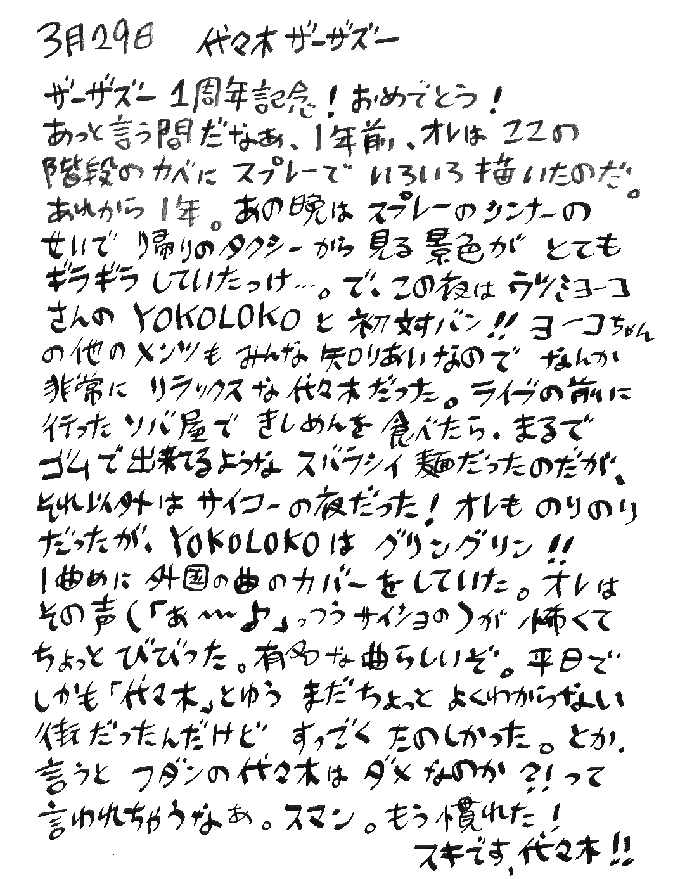 3月29日 代々木 ザーザズー
ザーザズー 1周年記念！おめでとう！
あっと言う間だなぁ、1年前、オレは ココの
階段のカベに スプレーで いろいろ描いたのだ。
あれから 1年。あの晩は スプレーのシンナーの
せいで 帰りのタクシーから 見る景色が とても
ギラギラ していたっけ…。で、この夜は ウツミヨーコ
さんの YOKOLOKO と 初対バン!! ヨーコちゃん
の他のメンツも みんな 知りあいなので なんか
非常に リラックスな 代々木だった。ライブの前に
行った ソバ屋で きしめんを 食べたら、まるで
ゴムで出来てるような スバラシイ 麺だったのだが、
それ以外は サイコーの夜だった！オレも のりのり
だったが、YOKOLOKOは グリングリン!!
1曲めに 外国の曲のカバーをしていた。オレは
その声(「あ〜〜♪」っつう サイショの)が 怖くて
ちょっと びびった。有名な曲らしいぞ。平日で
しかも「代々木」とゆう まだちょっと よくわからない
街だったんだけど すっごく たのしかった。とか
言うと フダンの代々木は ダメなのか?!って
言われちゃうなぁ。スマン。もう慣れた！
スキです、代々木!!